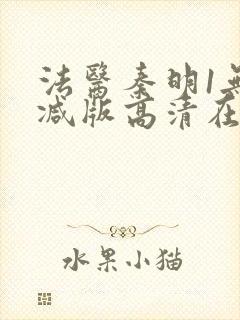 法醫秦明1無
减版高清在
水果小猫